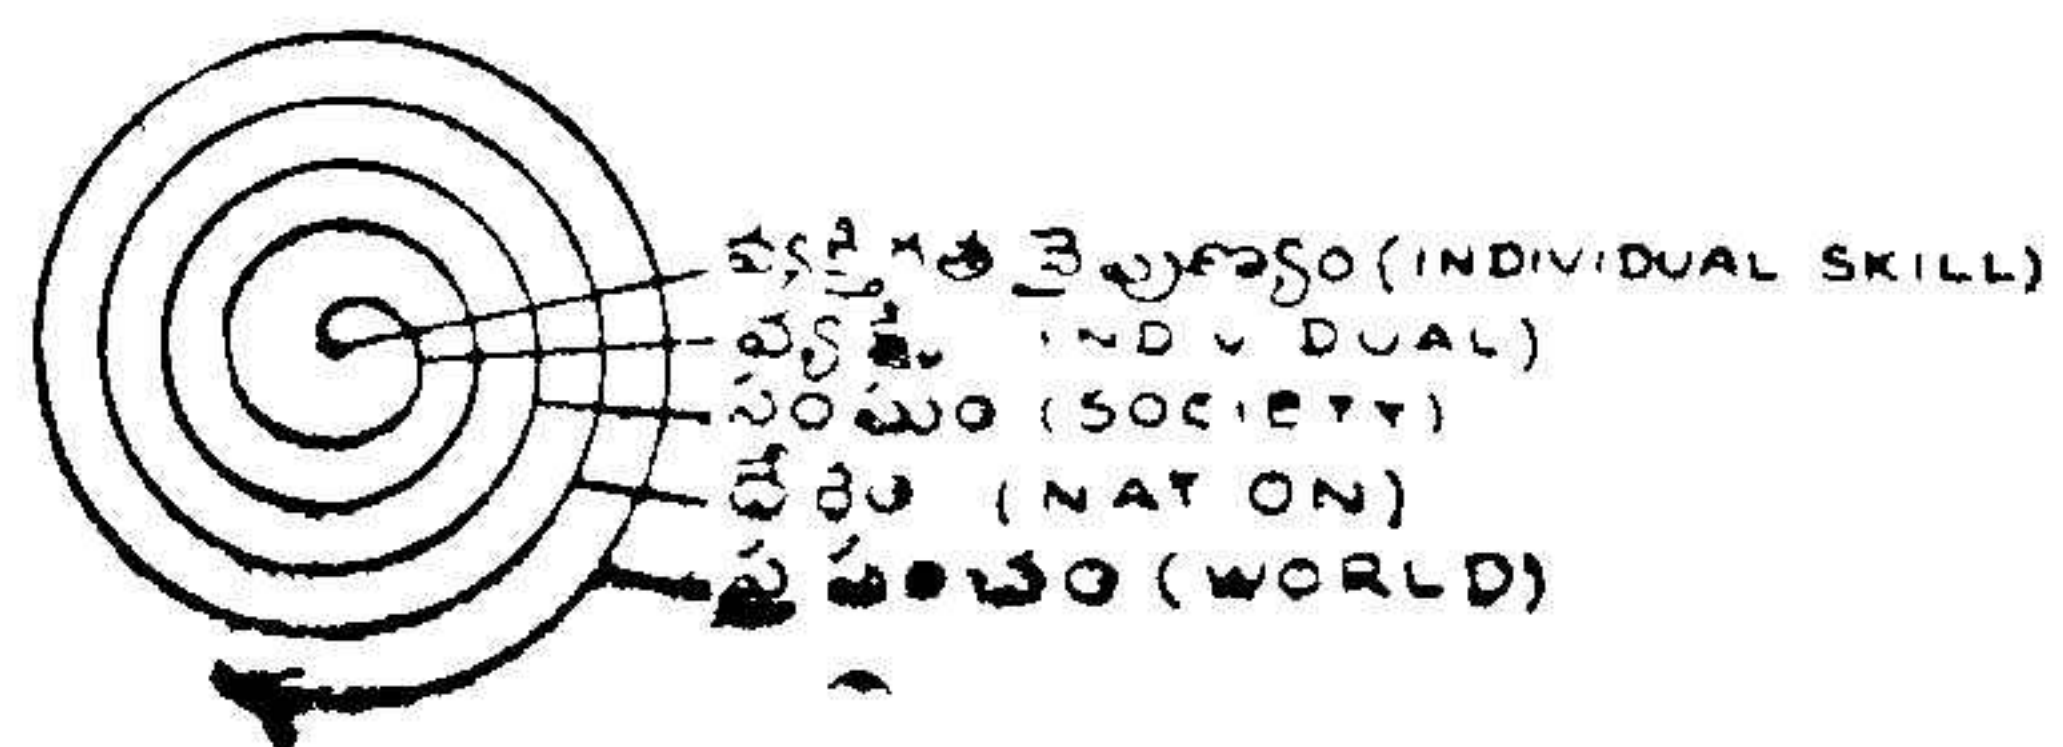 వ్యక్తిగత నైపుణ్యం (INDIVIDUAL SKILL)
వ్యక్తి (INDIVIDUAL)
సంఘం (SOCIETY)
దేశం (NATION)
ప్రపంచం (WORLD)